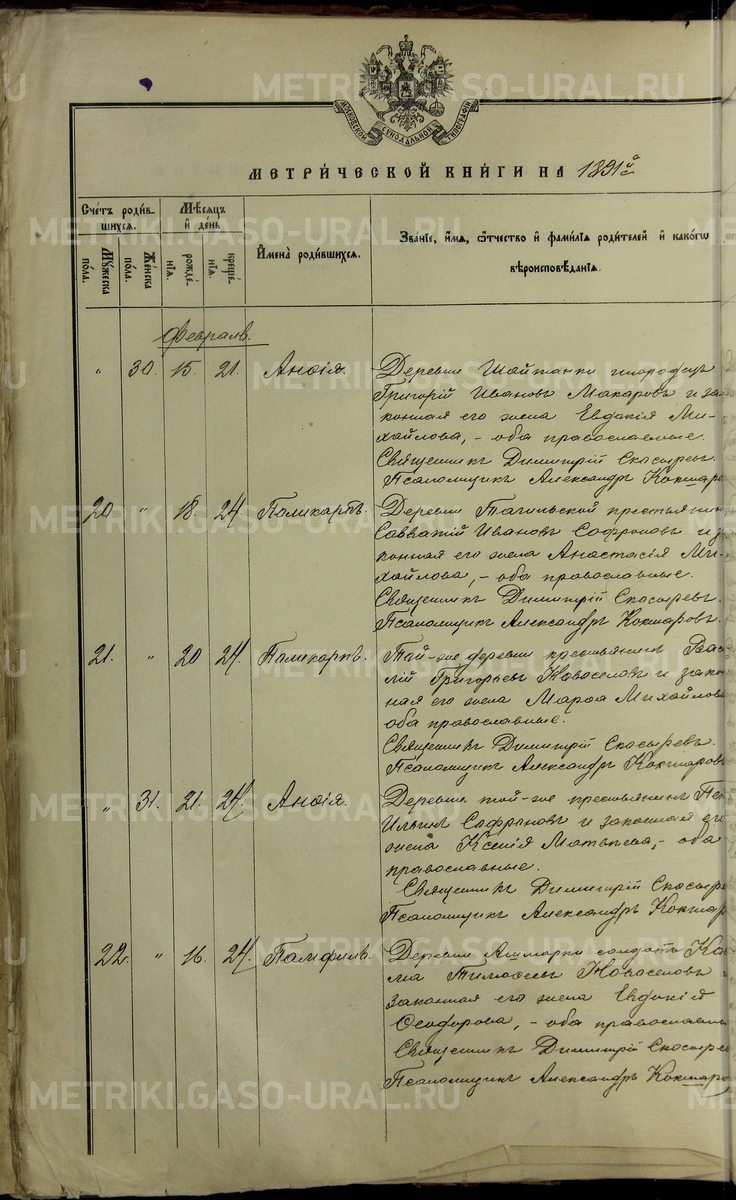 МОСКОВСКОЙ СѴНОДАЛЬНОЙ ТИПОГРАФІИ
МЕТРИ́ЧЕСКОЙ КНИ́ГИ НА 1891й
Сче́тъ роди́в-
шихся.
Мѣ́сяцъ
и҆ де́нь
Му́жеска
по́ла.
Же́нска
по́ла.
рожде́-
нїя.
креще́-
нїя.
И҆мена̀ роди́вшихся.
Зва́нїе, и҆́мя, ѻ҆́тчество и҆ фами́лїя роди́телей и҆ како́гѡ
вѣроисповѣ́данїя.
Февраль.
" 30. 15. 21. Анѳія. Деревни Шайтанки инородецъ
Григорій Ивановъ Макаровъ и за-
конная его жена Евдокія Ми-
хайлова, - оба православные.
Священникъ Димитрій Скосыревъ.
Псаломщикъ Александръ Кокшаро
20 " 18. 24. Поликарпъ. Деревни Тагильской крестьянин
Савватій Ивановъ Софроновъ и за
конная его жена Анастасія Ми-
хайлова, - оба православные.
Священникъ Димитрій Скосыревъ.
Псаломщикъ Александръ Кокшаровъ.
21. " 20 24. Поликарпъ. Той-же деревни крестьянинъ Васи
лій Григорьевъ Новоселовъ и закон
ная его жена Марѳа Михайлова
оба православные.
Священникъ Димитрій Скосыревъ.
Псаломщикъ Александръ Кокшаровъ
" 31. 21. 24. Анѳія. Деревни той-же крестьянинъ Пет
Ильинъ Софроновъ и законная его
жена Ксенія Матвѣева, - оба
православные.
Священникъ Димитрій Скосыре
Псаломщикъ Александръ Кокшар
22. " 16. 24. Памфилъ. Деревни Ашмарки солдатъ Кось
ма Тимоѳеевъ Новоселовъ и
законная его жена Евдокія
Ѳеодорова, - оба православны
Священникъ Димитрій Скосырев
Псаломщикъ Александръ Кокшаро
METRIKI.GASO-URAL.RU